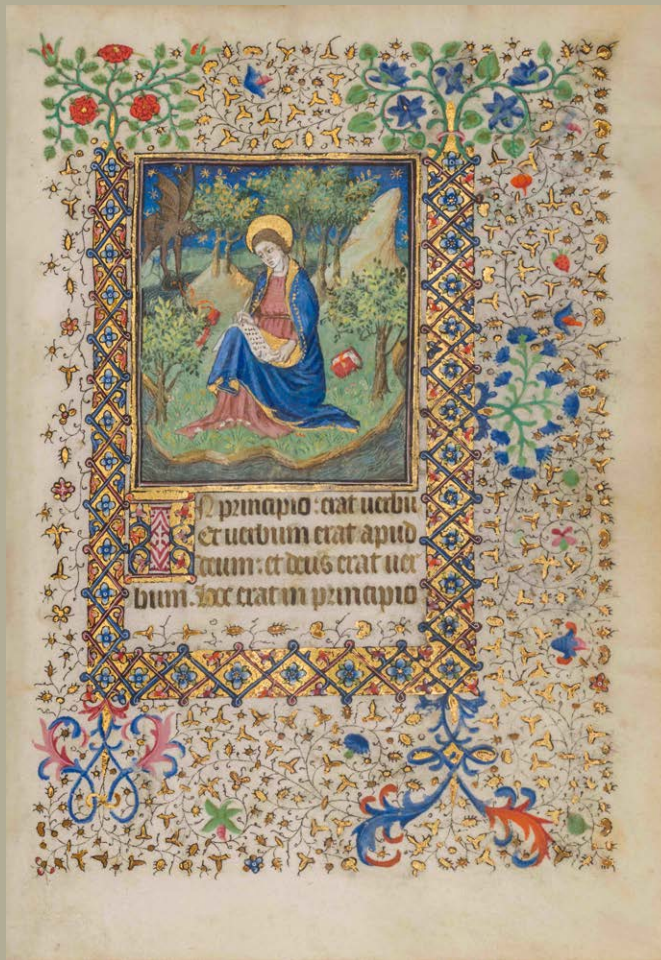 IN principio : erat uerbū
et uerbum erat apud
deum : et deus erat uer
bum . hoc erat in principio